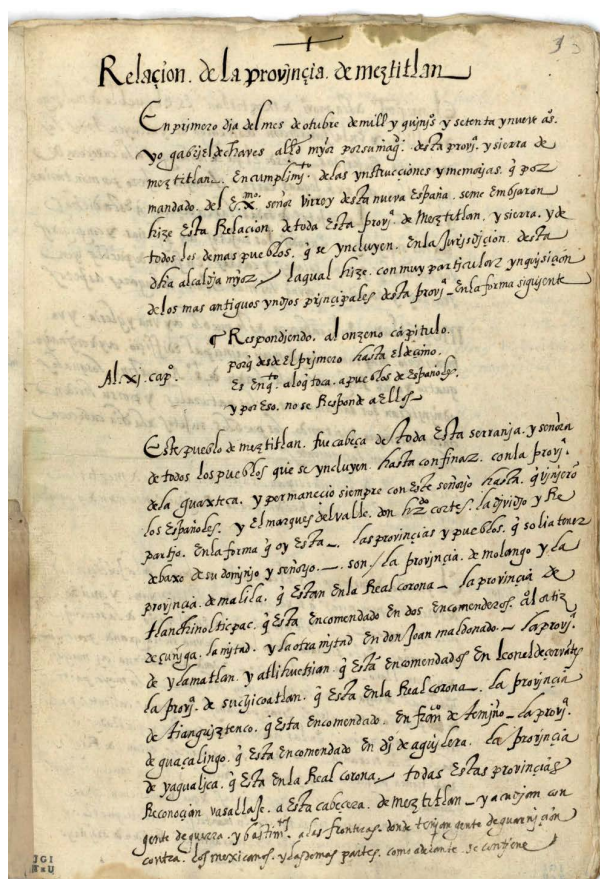 3
Relaçion. de la provinçia. de meztitlan
En primero dia del mes de otubre de mill y quinjs y setenta y nueve aºs.
yo gabriel de chaves alld mȷor por su magt. desta provja. y sierra de
meztitlan. En cumplimjto. de las ynstrucciones y memorias. q por
mandado. del Exmo. señor virrey desta nueva españa. seme Embiaron
hize Esta Relacion. de toda Esta provja. de Meztitlan. y sierra. y de
todos los demas pueblos. q se yncluyen. En la Jurisdiçion. desta
dha alcaldia mȷor, la qual hize. con muy particular ynquisiçion
de los mas antiguos yndios prinçipales desta provja. En la forma siguiente
Respondiendo. al onzeno capitulo.
porq desde El primero hasta El deçimo.
Al. xj. capº. Es En qto. a lo q toca. a pueblos de Españoles.
y por Eso. no se Responde a Ellos
Este pueblo de meztitlan. fue cabeça de toda Esta serrania. y señora
de todos los pueblos que se yncluyen. hasta confinar. con la provja.
de la guaxteca. y permanecio siempre con Este señorio hasta. q vinjerō
los Españoles. y El marques del valle. don hrdo cortes. la dividio y Re
partio. En la forma q oy Esta. las provincias y pueblos. q solia tener
debaxo de su dominjo y señorio. son / la provinçia. de molango y la
provinçia. de malila. q Estan En la Real corona. la provincia de
tlanchinolticpac. q Esta Encomendado En dos Encomenderos. alº ortiz
de çuñiga. la mitad. y la otra mitad En don Joan maldonado. la provja.
de ylamatlan. y atlihuetzian. q Esta Encomendados En leonel de cervātes
la provja. de suchicoatlan. q Esta En la Real corona. la provinçia
de tianguiztenco. q Esta Encomendado. En franco de temiño la provja.
de guaçalingo. q Esta Encomendado En dº de aguilera. la provinçia
de yagualica. q Esta En la Real corona, todas Estas provinçias
Reconoçian vasallaje. a Esta cabeçera. de meztitlan y acudian con
gente de guerra. y bastimtos a las fronteras. donde tenjan gente de guarniçion
contra. los mexicanos. y las demas partes. como adelante. se contiene
JGI